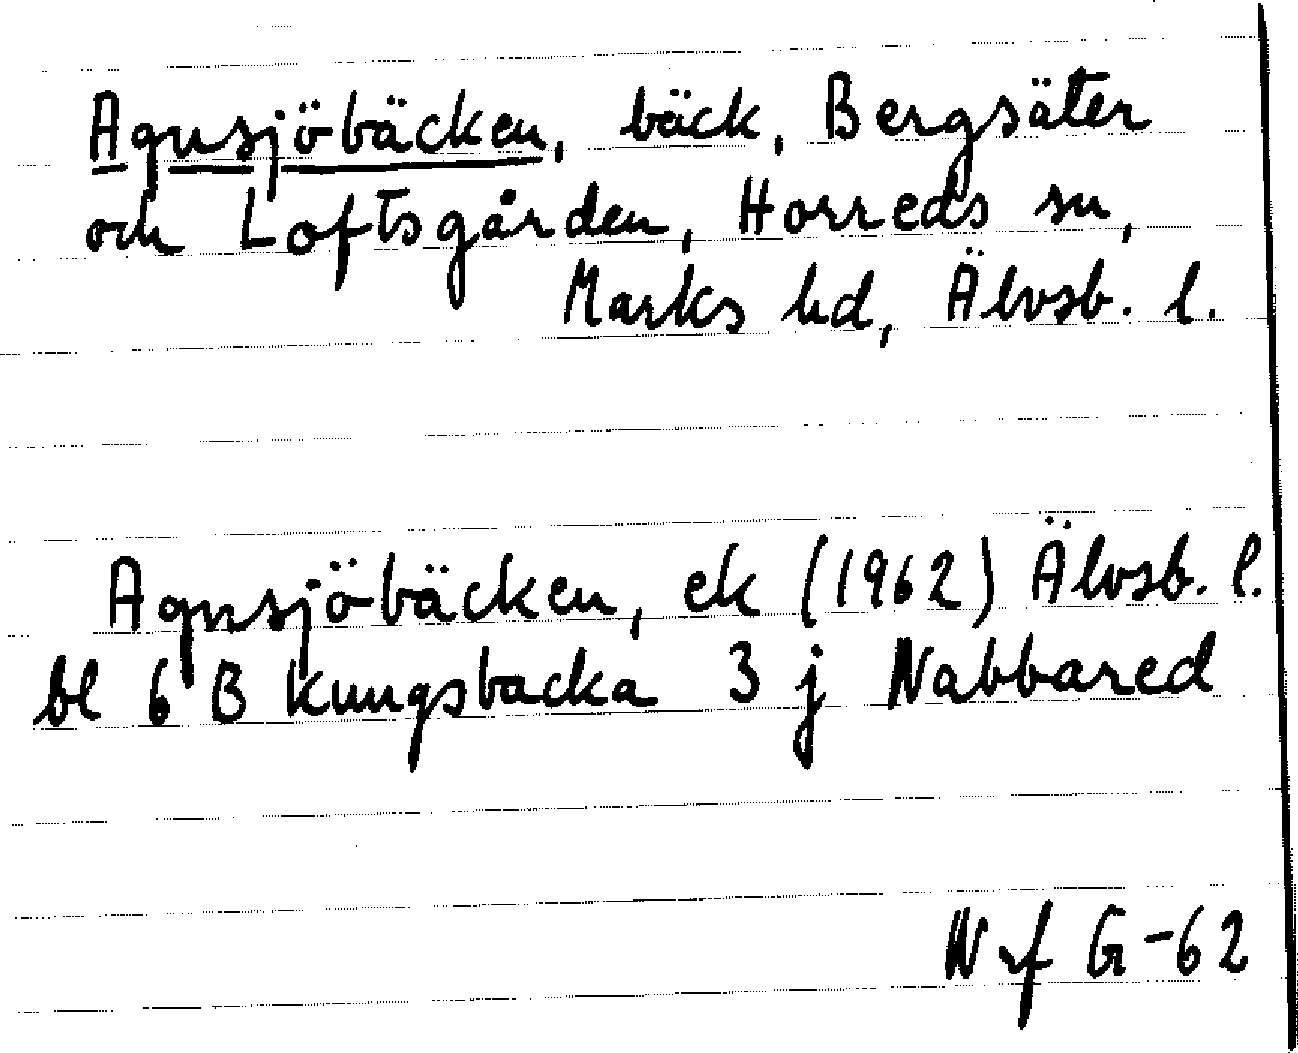 Agnsjöbäcken, bäck, Bergsäter
och Loftsgården, Horreds sn,
Marks hd, Älvsb. l.
Agnsjöbäcken, ek (1962) Älvsb. l.
bl 6 B Kungsbacka 3 j Nabbared
N f G-62